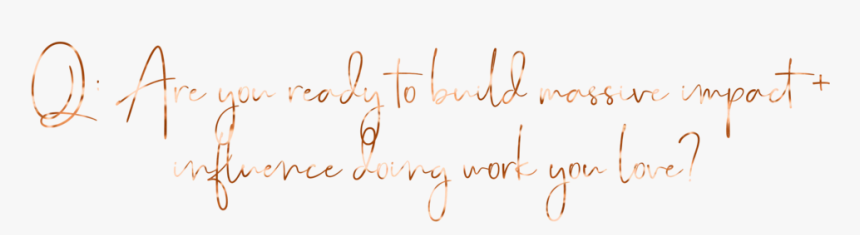 Q: Are you ready to build massive impact +
influence doing work you love?